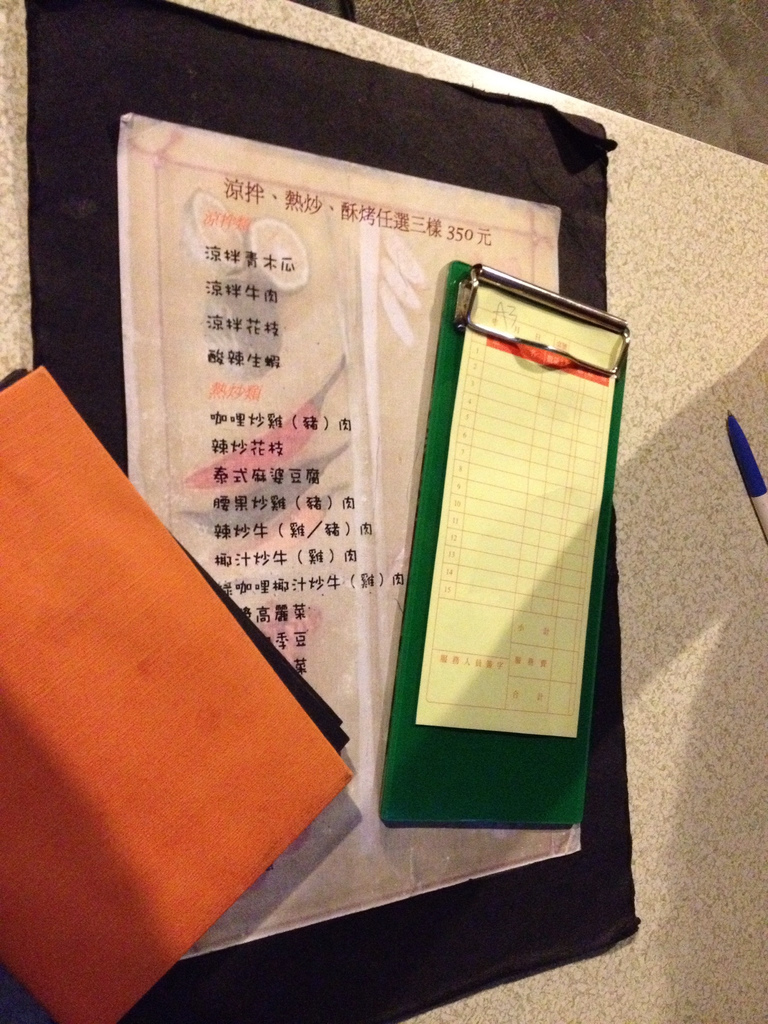 涼拌、熱炒、酥烤任選三樣 350 元
涼拌類
涼拌青木瓜
涼拌牛肉
涼拌花枝
酸辣生蝦
熱炒類
咖哩炒雞（豬）肉
辣炒花枝
泰式麻婆豆腐
腰果炒雞（豬）肉
辣炒牛（雞／豬）肉
椰汁炒牛（雞）肉
綠咖哩椰汁炒牛（雞）肉
高麗菜
季豆
菜
A3
年 月 日
1
2
3
4
5
6
7
8
9
10
11
12
13
14
15
小 計
服務人員簽字 服務費
合 計